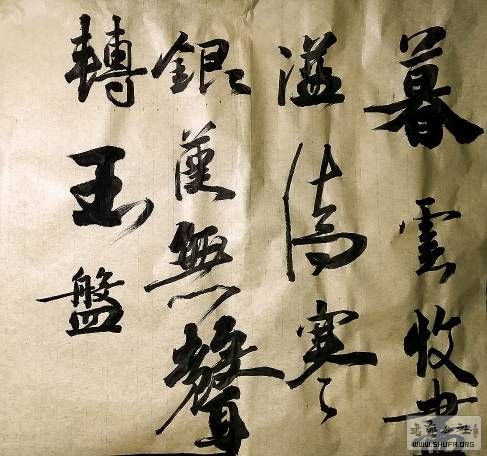 暮雲收盡
溢清寒
銀漢無聲
轉玉盤
WWW.SHUFA.ORG